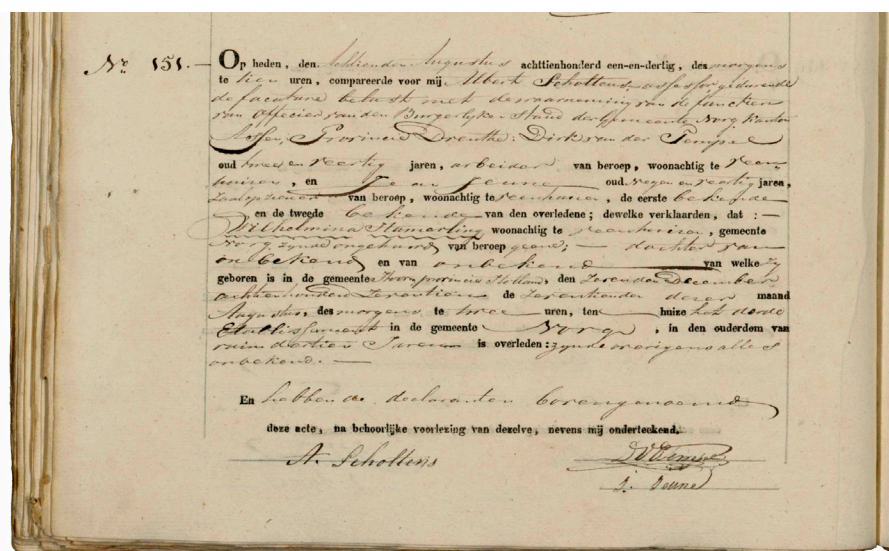 No 151. — Op heden, den achttienden Augustus achttienhonderd een-en-dertig, des morgens
te tien uren, compareerde voor mij Albert Scholtens, assessor gedurende
de facature belast met de waarneming van de functien
van Officier van den Burgerlijken Stand der Gemeente Norg Kanton
Assen, Provincie Drenthe: Dirk van der Tempel
oud twee en veertig jaren, arbeider van beroep, woonachtig te Veen-
huizen, en Jean Jeune oud negen en veertig jaren,
zaalopziener van beroep, woonachtig te veenhuizen, de eerste bekende
en de tweede bekende van den overledene; dewelke verklaarden, dat: —
Wilhelmina Hamerling woonachtig te veenhuizen, gemeente
Norg, zynde ongehuwd, van beroep geene; — dochter van
onbekend en van onbekend van welke Zy
geboren is in de gemeente Hoorn provincie Holland, den Zevenden December
achttienhonderd Zeventien de Zeventienden dezer maand
Augustus, des morgens te twee uren, ten huize het derde
Etablissement in de gemeente Norg, in den ouderdom van
ruim dertien Jaren is overleden: zynde overigens alles
onbekend. —
En hebben de declaranten bovengenoemd
deze acte, na behoorlijke voorlezing van dezelve, nevens mij onderteekend.
A. Scholtens
DVTempel
J. Jeune